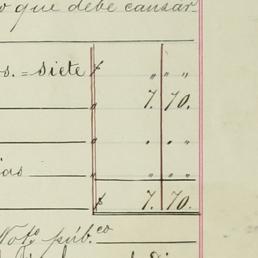 o que debe causar
os. = siete $ " " "
" 7. 70.
" " . "
ias " " " "
$ 7. 70.
Noto. púb.co